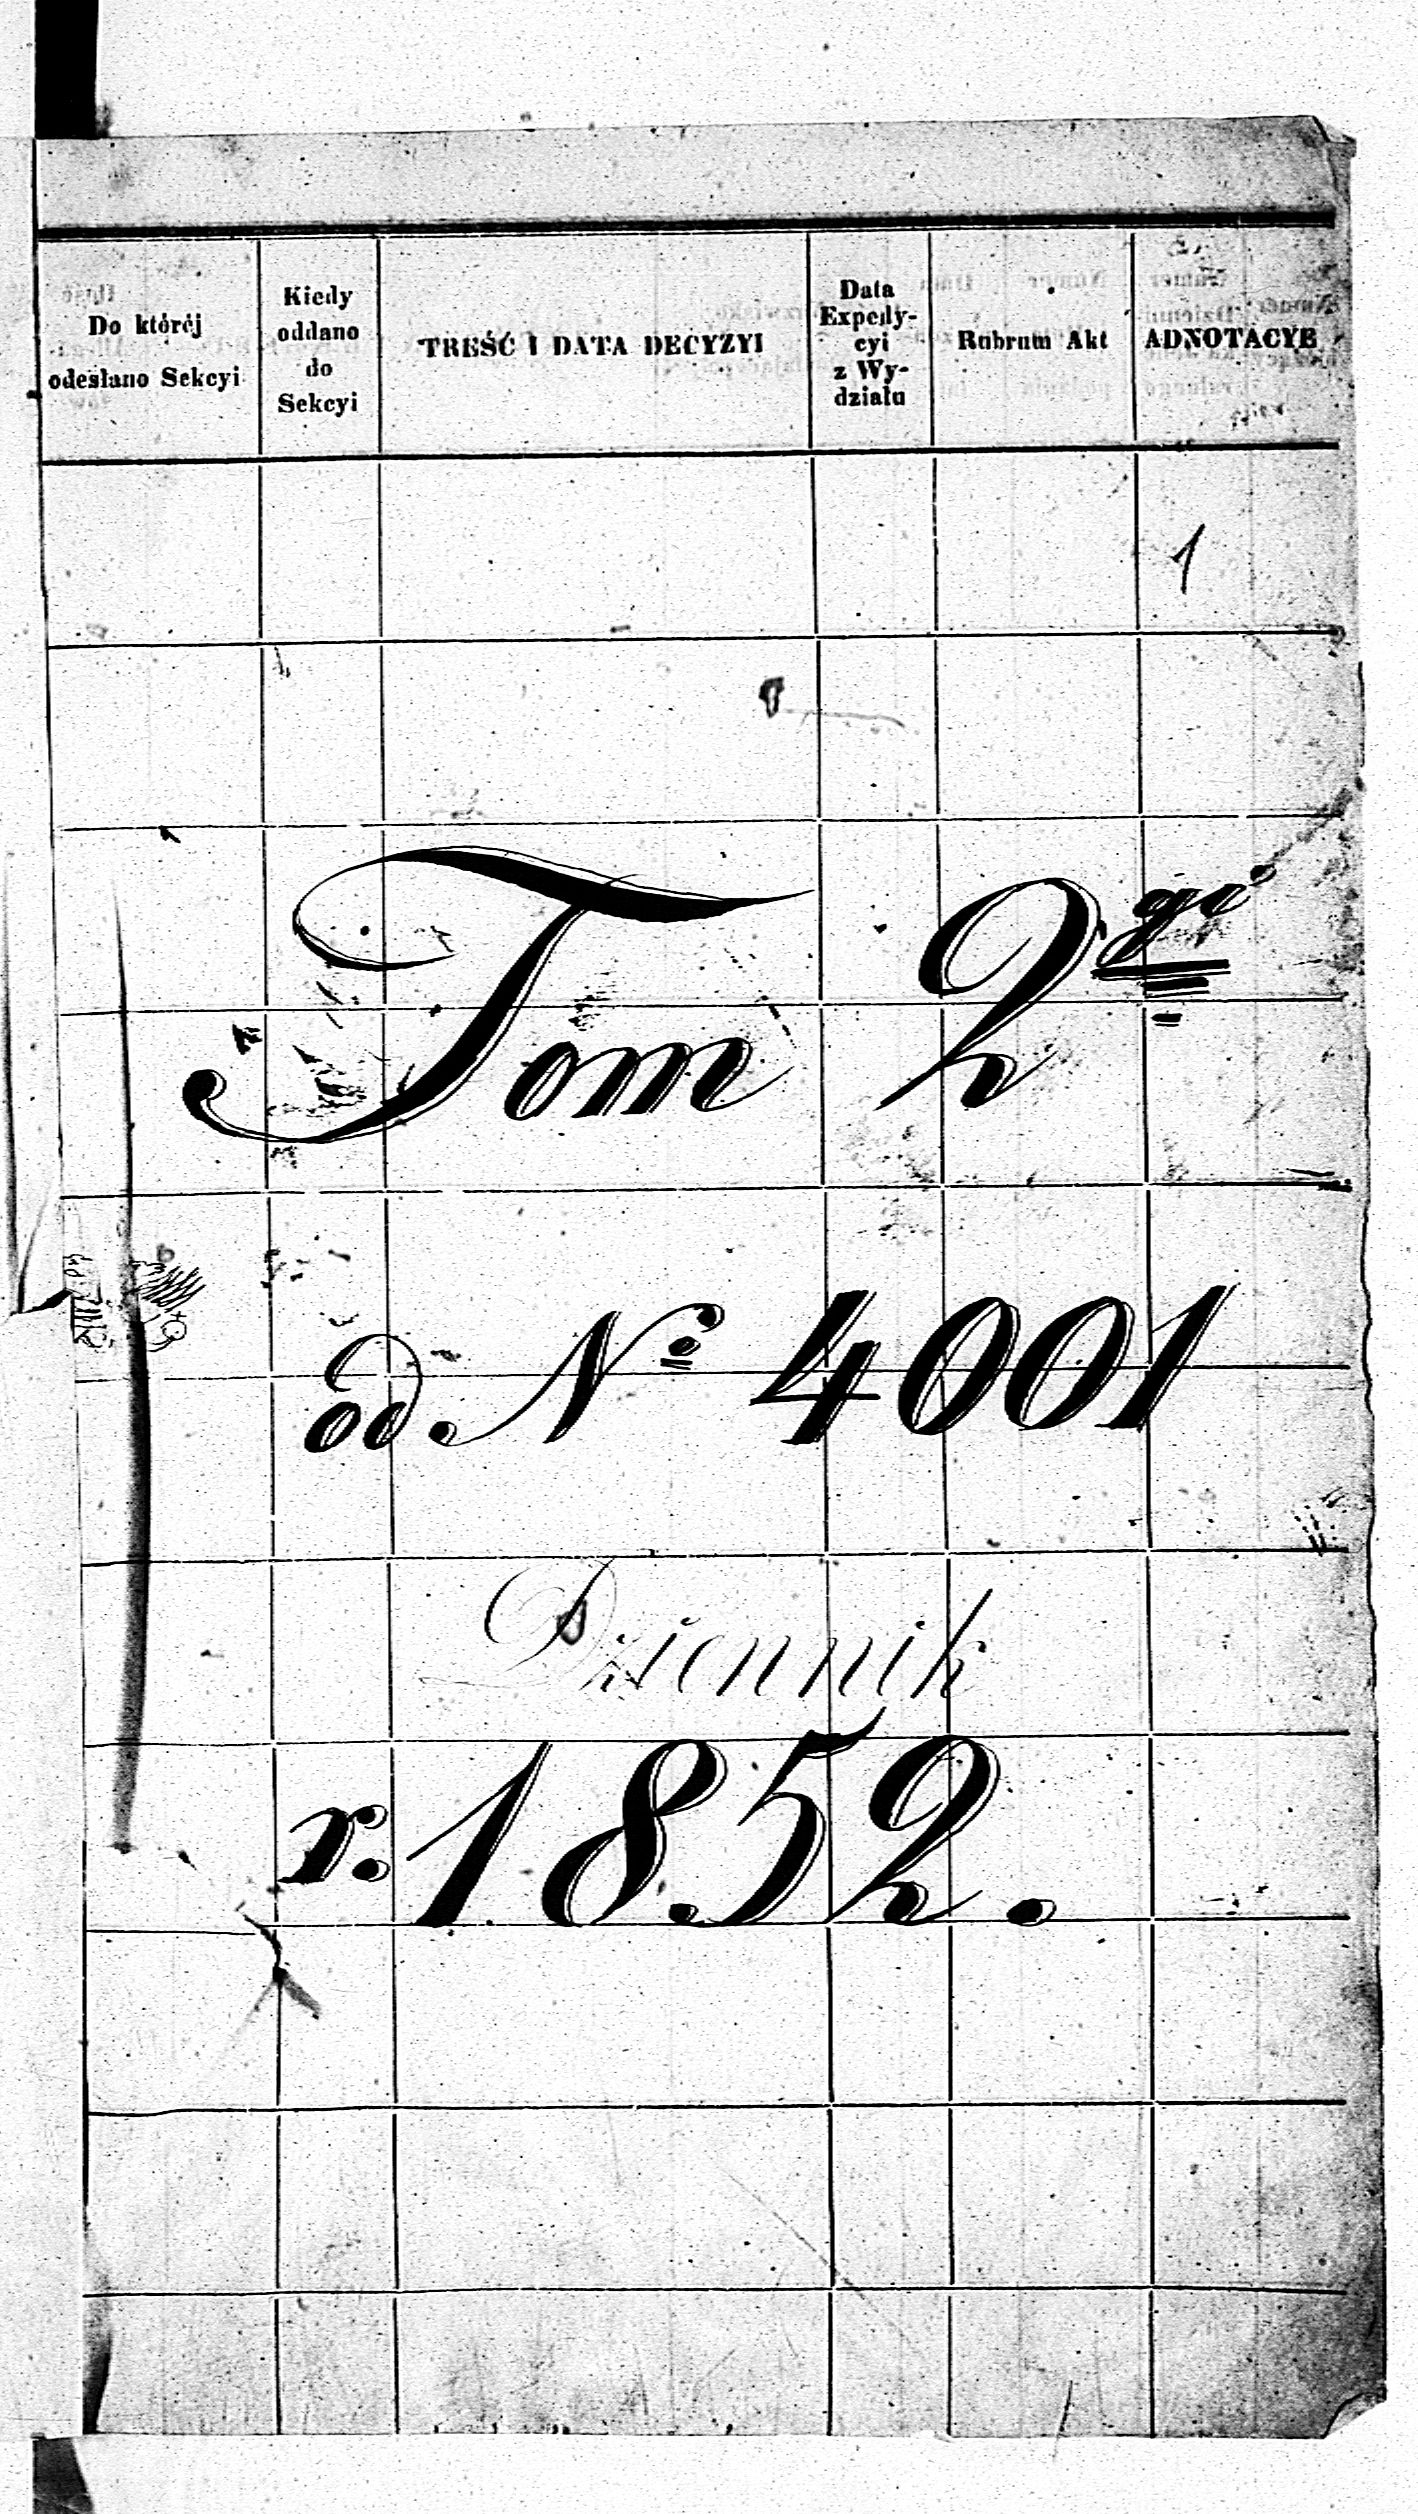 Do którėj
odesłano Sekcyi
Kiedy
oddano
do
Sekcyi
TREŚĆ I DATA DECYZYI
Data
Expedy-
cyi
z Wy-
działu
Rubrum Akt
ADNOTACYE
1
Tom 2gi
od No 4001
Dziennik
r. 1852.